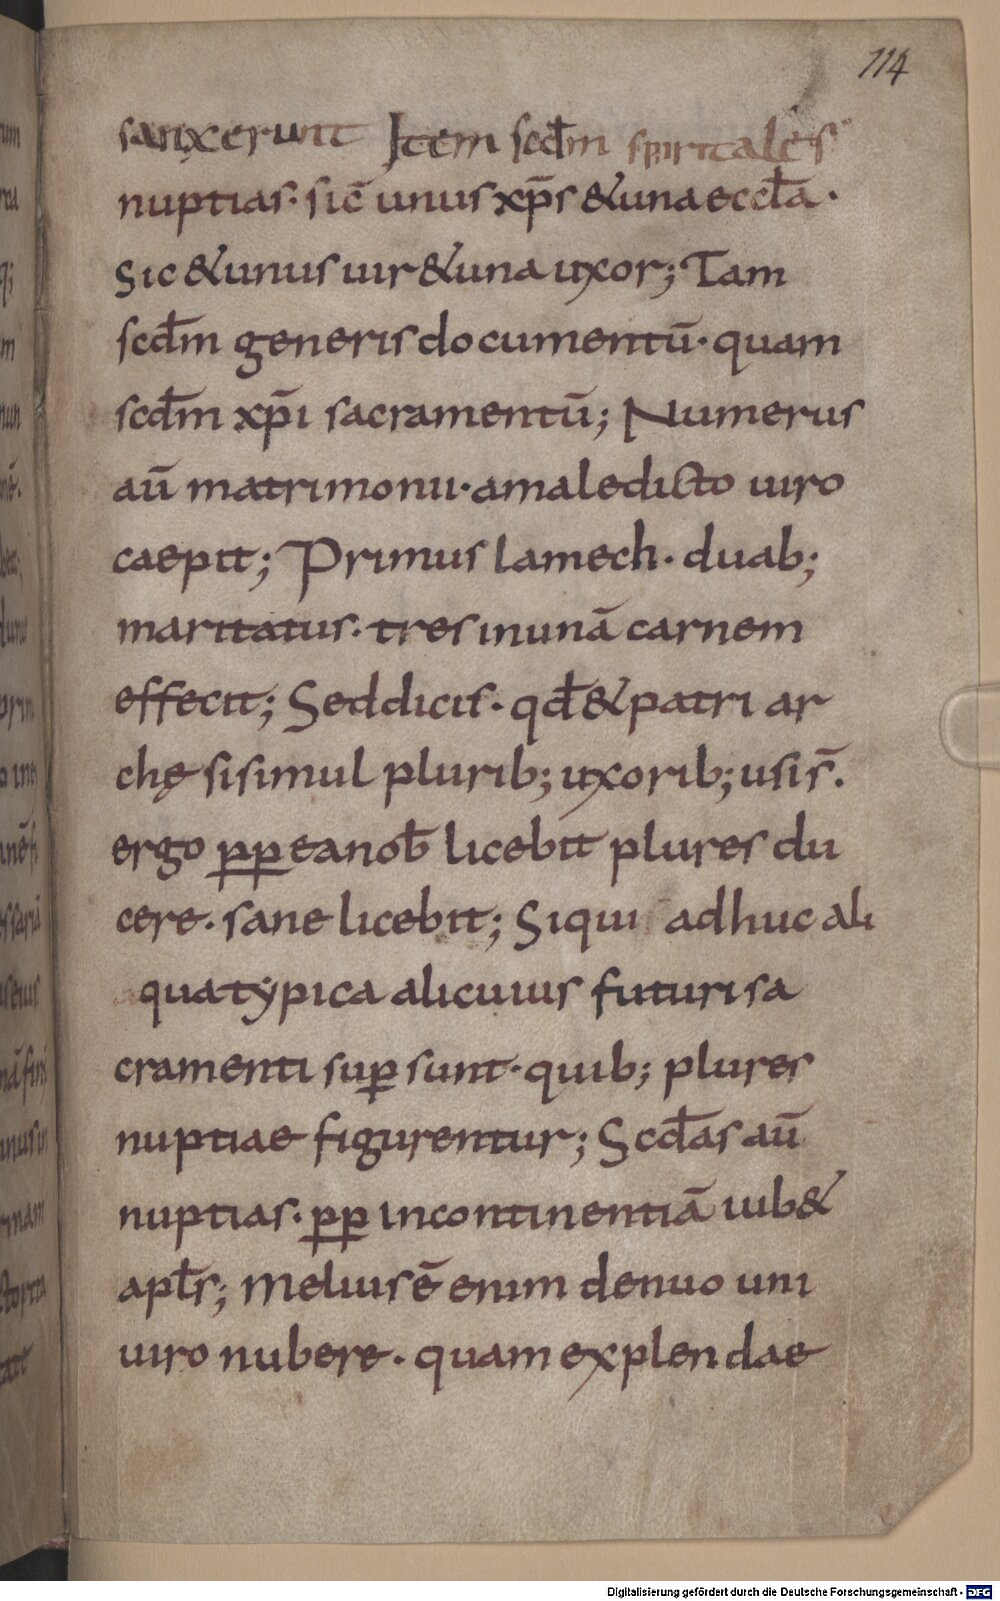 114
sanxerunt Item scdm spiritales
nuptias· sic̄ unus xp̄s & una eccl̄a·
Sic & unus uir & una uxor; Tam
scdm generis documentū· quam
scdm xp̄i sacramentū; Numerus
aū matrimonii· amaledicto uiro
caepit; Primus lamech· duab;
maritatus· tres inunā carnem
effecit; Seddicis· qđ & patri ar
chę sisimul plurib; uxorib; usis̄.
ergo ꝓꝓ eanob̄ licebit plures du
cere· sane licebit; Siqui adhuc ali
qua typica alicuius futuri sa
cramenti suꝑ sunt· quib; plures
nuptiae figurentur; Scđas aū
nuptias· ꝓꝓ incontinentiā iub&
apl̄s; Melius ē enim denuo uni
uiro nubere· quam explendae
Digitalisierung gefördert durch die Deutsche Forschungsgemeinschaft - DFG